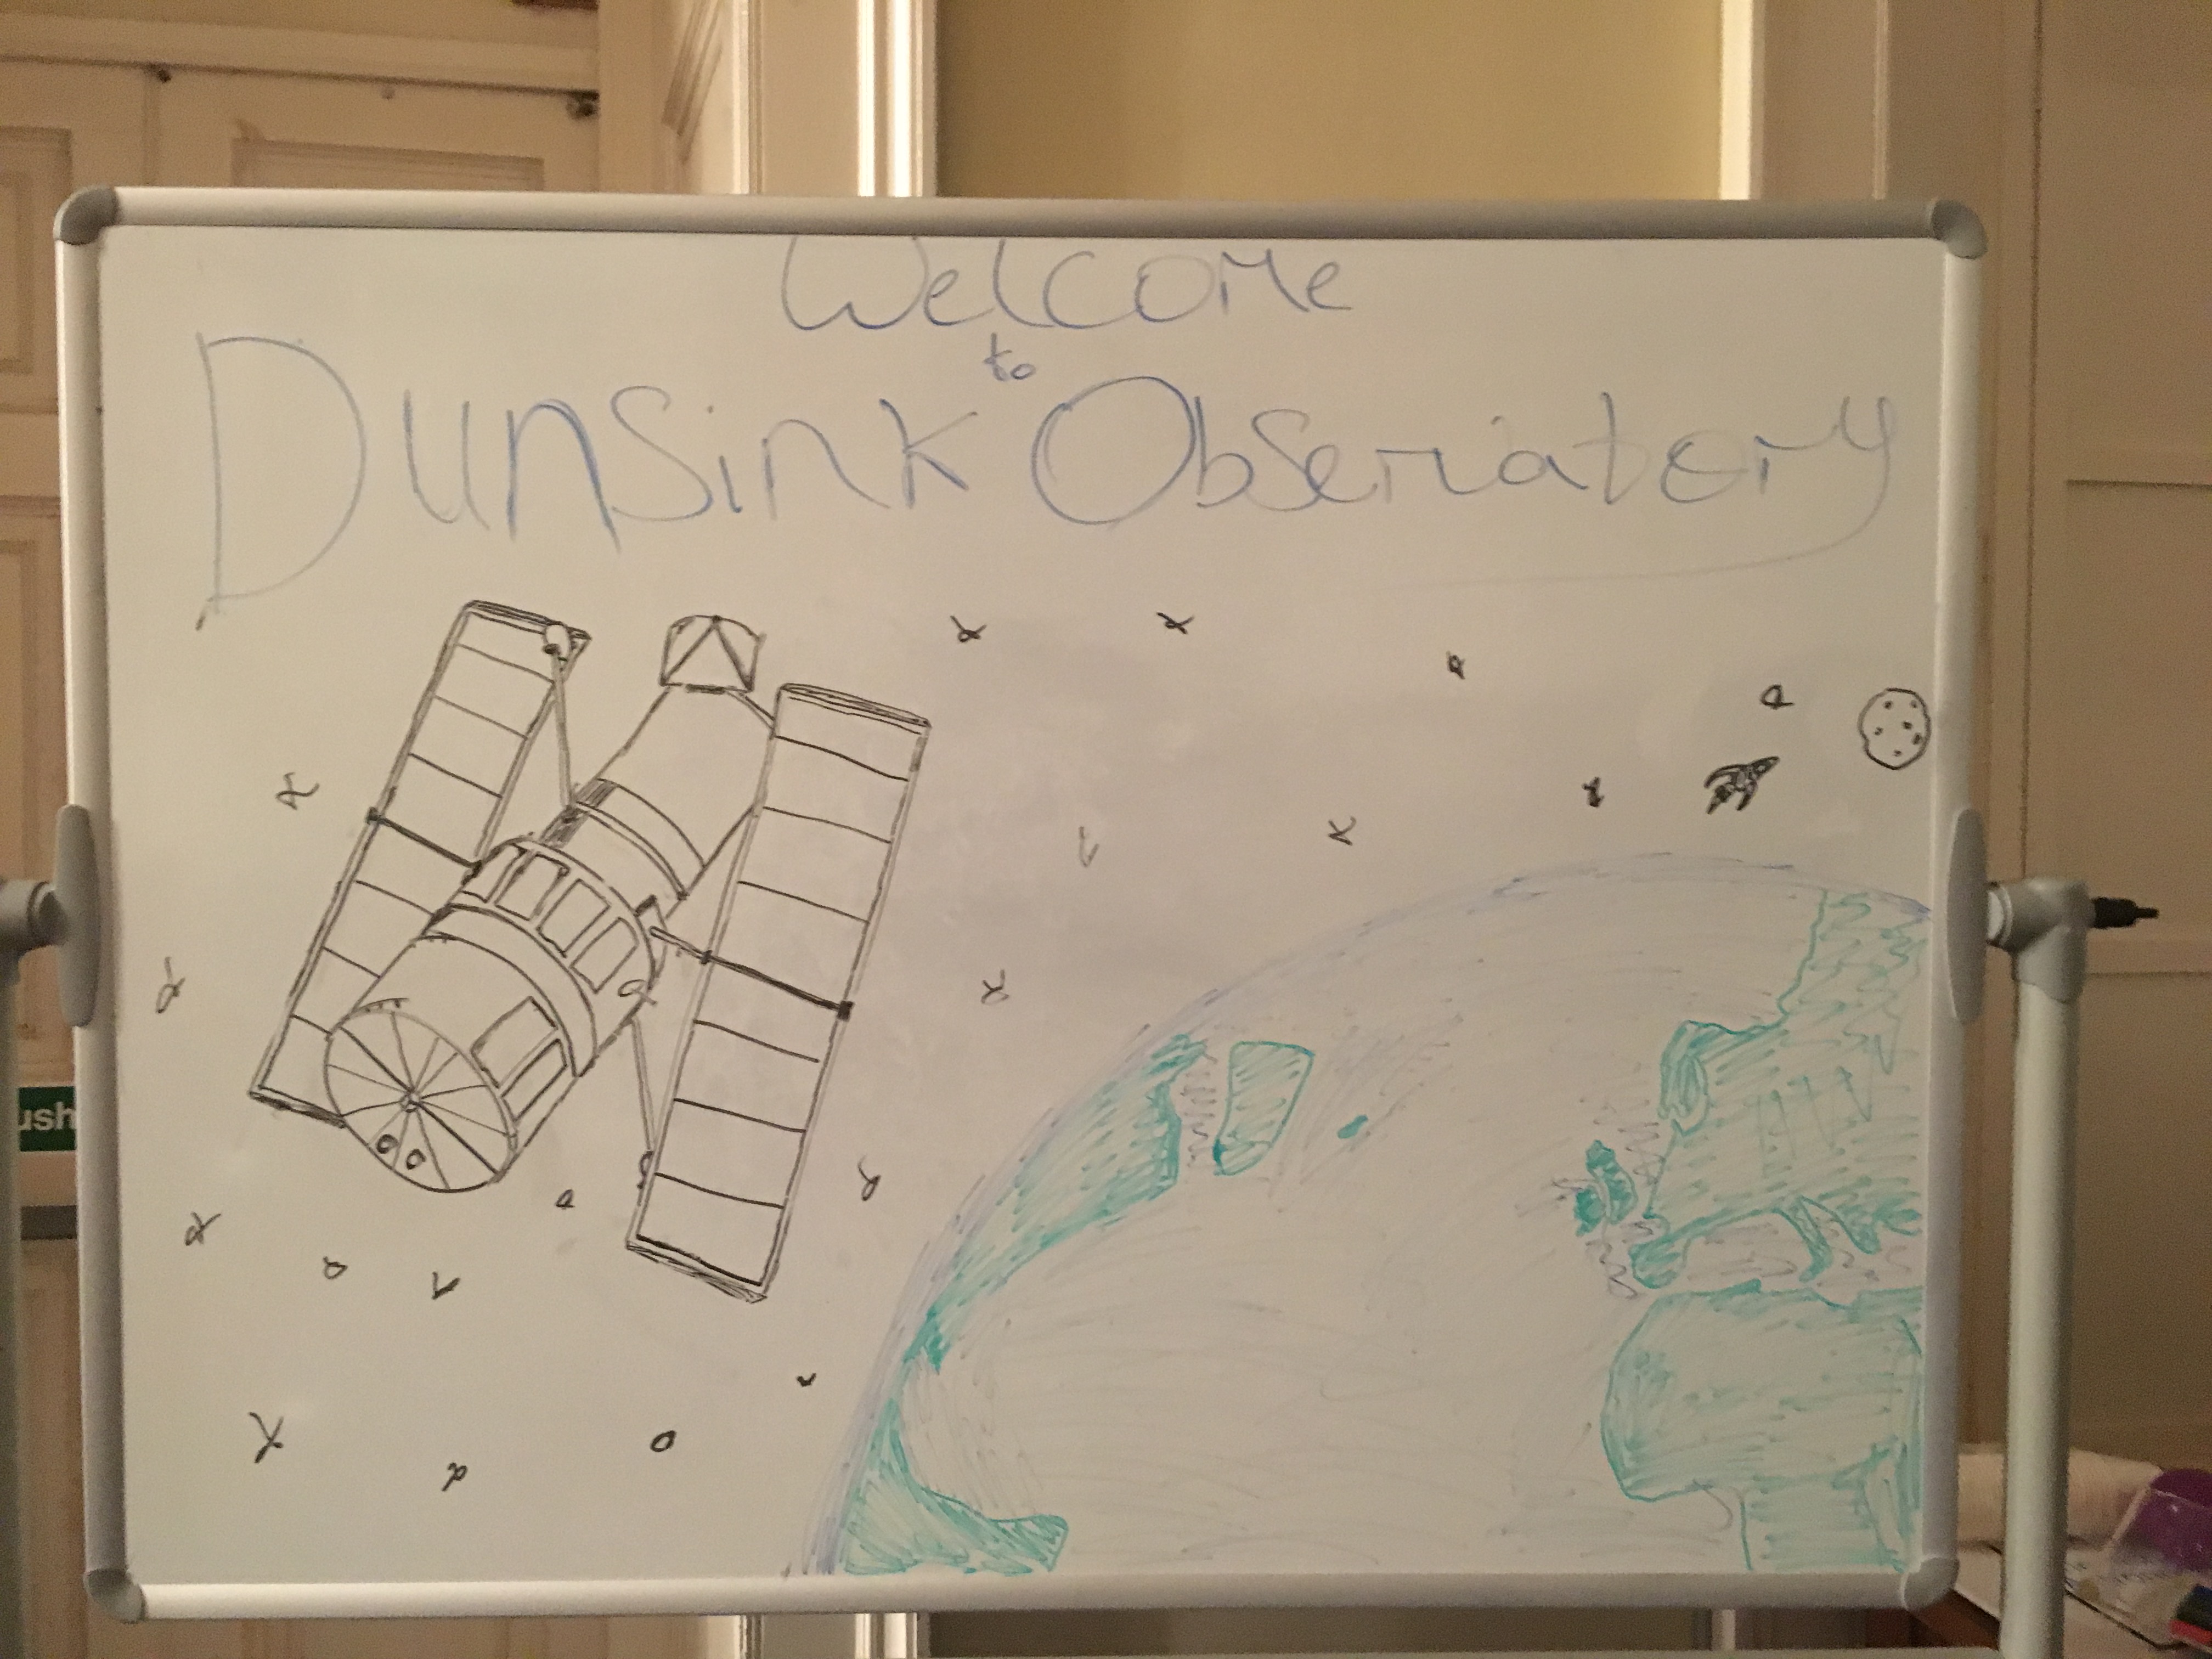 Welcome
to
Dunsink Observatory
ush